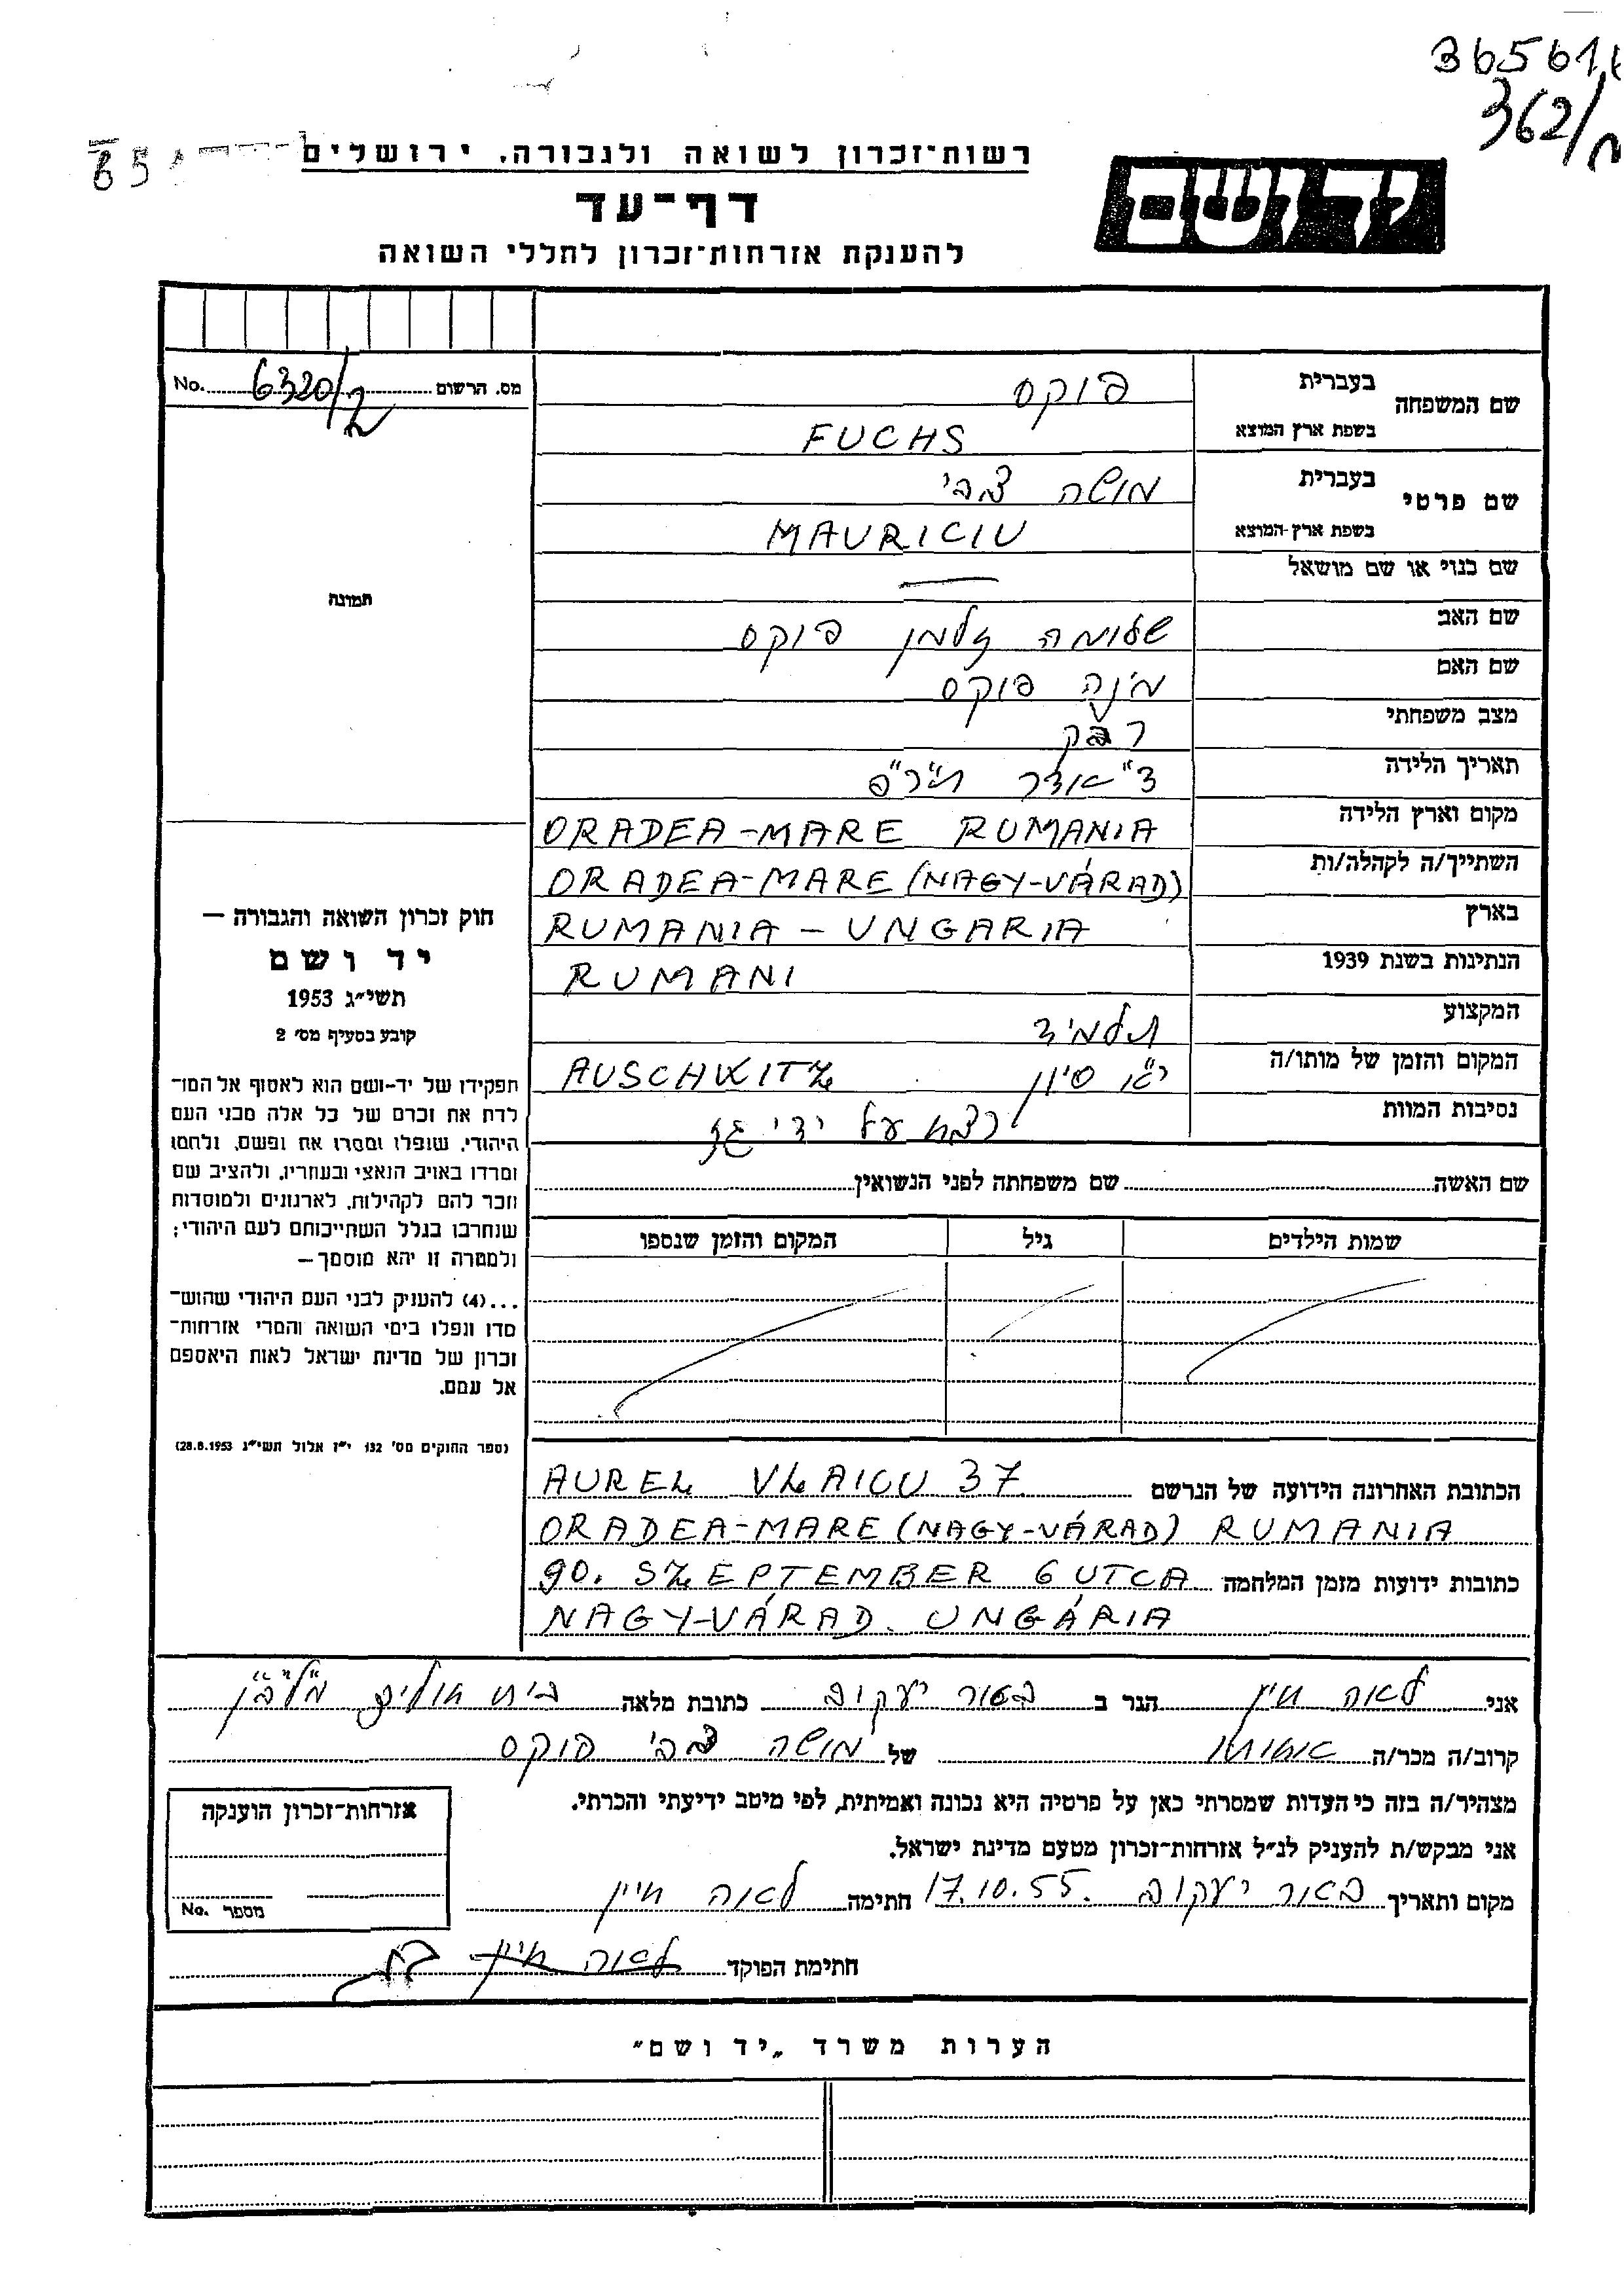 365611
362/מ
יד ושם
רשות־זכרון לשואה ולגבורה, ירושלים
דף־עד
להענקת אזרחות־זכרון לחללי השואה
מס. הרשום 6320/ No.
תמונה
שם המשפחה
בעברית פוקס
בשפת ארץ המוצא FUCHS
שם פרטי
בעברית משה צבי
בשפת ארץ-המוצא MAURICIU
שם כנוי או שם מושאל —
שם האב שלומה זלמן פוקס
שם האם מינה פוקס
מצב משפחתי רווק
תאריך הלידה אדר תר"פ
מקום וארץ הלידה ORADEA-MARE RUMANIA
השתייך/ה לקהלה/ות ORADEA-MARE (NAGY-VÁRAD)
בארץ RUMANIA - UNGARIA
הנתינות בשנת 1939 RUMANI
המקצוע תלמיד
המקום והזמן של מותו/ה י"א סיון AUSCHWITZ
נסיבות המוות נרצח על ידי גז
שם האשה שם משפחתה לפני הנשואין
שמות הילדים גיל המקום והזמן שנספו
חוק זכרון השואה והגבורה —
יד ושם
תשי״ג 1953
קובע בסעיף מס׳ 2
תפקידו של יד-ושם הוא לאסוף אל המו־
לדת את זכרם של כל אלה מבני העם
היהודי, שנפלו ומסרו את נפשם, נלחמו
ומרדו באויב הנאצי ובעוזריו, ולהציב שם
וזכר להם לקהילות, לארגונים ולמוסדות
שנחרבו בגלל השתייכותם לעם היהודי;
ולמטרה זו יהא מוסמך—
...(4) להעניק לבני העם היהודי שהוש־
מדו ונפלו בימי השואה והמרי אזרחות־
זכרון של מדינת ישראל לאות היאספם
אל עמם.
(ספר החוקים מס׳ 132 י״ז אלול תשי״ג 28.8.1953)
הכתובת האחרונה הידועה של הנרשם AUREL VLAICU 37
ORADEA-MARE (NAGY-VÁRAD) RUMANIA
כתובות ידועות מזמן המלחמה SZEPTEMBER 6 UTCA 90.
NAGY-VÁRAD. UNGÁRIA
אני לאה חיין הגר ב באר יעקוב כתובת מלאה בית חולים מלב"ן
קרוב/ה מכר/ה אחותו של משה צבי פוקס
מצהיר/ה בזה כי העדות שמסרתי כאן על פרטיה היא נכונה ואמיתית, לפי מיטב ידיעתי והכרתי.
אני מבקש/ת להעניק לנ״ל אזרחות־זכרון מטעם מדינת ישראל.
מקום ותאריך באר יעקוב 17.10.55. חתימה לאה חיין
חתימת הפוקד לאה חיין
אזרחות־זכרון הוענקה
מספר No.
הערות משרד „יד ושם״